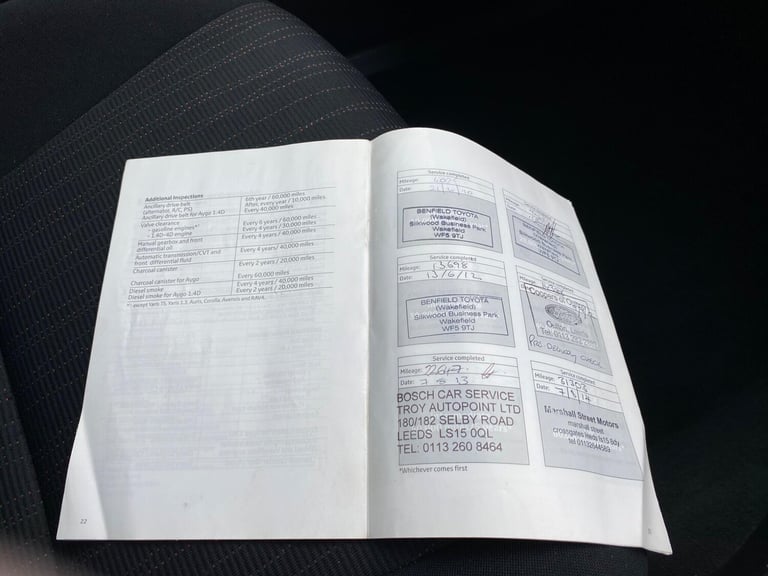 Additional Inspections
Ancillary drive belt
(alternator, A/C, PS)
6th year / 60,000 miles
After, every year / 10,000 miles
Ancillary drive belt for Aygo 1.4D
Every 40,000 miles
Valve clearance
- gasoline engines*¹
Every 6 years / 60,000 miles
- 1.4D-4D engine
Every 4 years / 30,000 miles
Manual gearbox and front
differential oil
Every 4 years / 40,000 miles
Automatic transmission/CVT and
front differential fluid
Every 4 years/ 40,000 miles
Charcoal canister
Every 2 years / 20,000 miles
Charcoal canister for Aygo
Every 60,000 miles
Diesel smoke
Every 4 years / 40,000 miles
Diesel smoke for Aygo 1.4D
Every 2 years / 20,000 miles
22
Service completed
Mileage:
Date:
BENFIELD TOYOTA
(Wakefield)
Silkwood Business Park
Wakefield
WF5 9TJ
Service completed
Mileage: 13698
Date: 13/6/12
BENFIELD TOYOTA
(Wakefield)
Silkwood Business Park
Wakefield
WF5 9TJ
Coopers of
Oulton, Leeds
Tel: 0113
Pre Delivery check
Service completed
Mileage:
Date: 7 8 13
BOSCH CAR SERVICE
TROY AUTOPOINT LTD
180/182 SELBY ROAD
LEEDS LS15 0QL
TEL: 0113 260 8464
Service completed
Mileage: 31303
Date: 7/8/14
Marshall Street Motors
marshall street
crossgates leeds ls15 8dy
tel 01132644569
*Whichever comes first